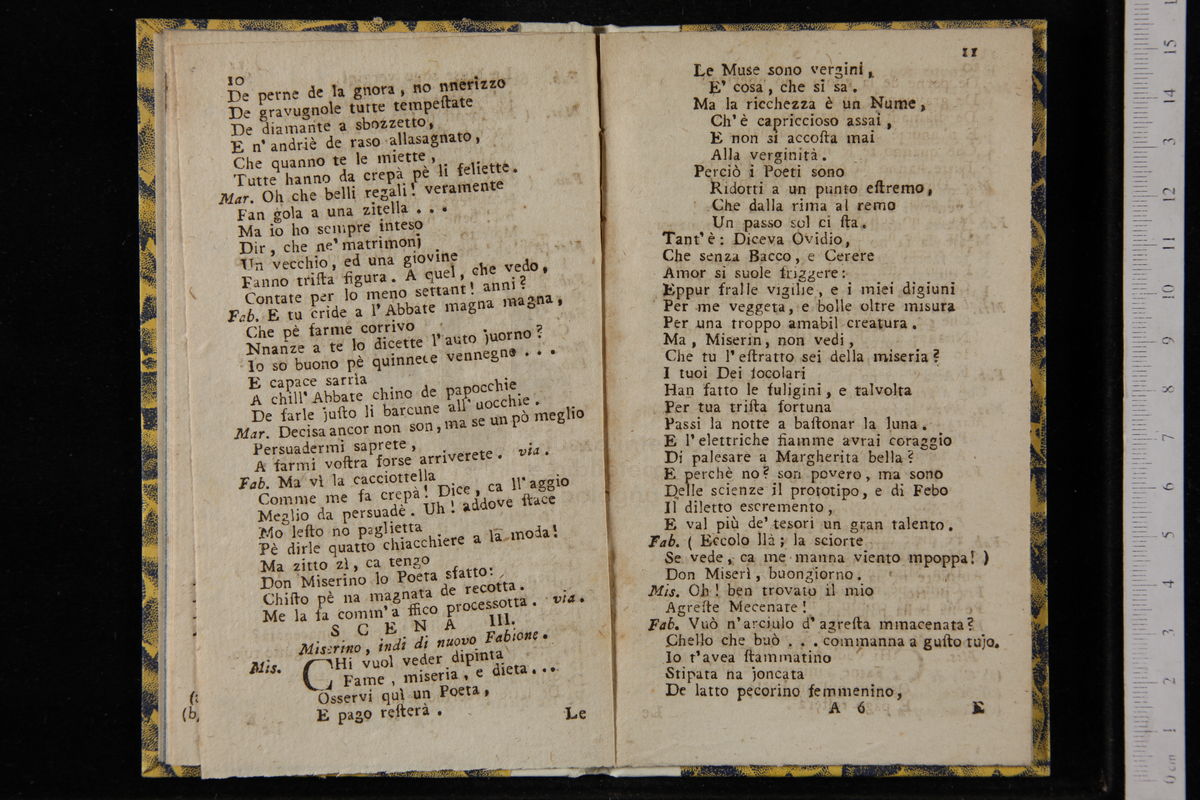 10
De perne de la gnora, no nnerizzo
De gravugnole tutte tempeſtate
De diamante a sbozzetto,
E n' andriè de raso allasagnato,
Che quanno te le miette,
Tutte hanno da crepà pè li feliette.
Mar. Oh che belli regali! veramente
Fan gola a una zitella . . .
Ma io ho sempre inteso
Dir, che ne' matrimonj
Un vecchio, ed una giovine
Fanno triſta figura. A quel, che vedo,
Contate per lo meno settant' anni?
Fab. E tu cride a l'Abbate magna magna,
Che pè farme corrivo
Nnanze a te lo dicette l'auto juorno?
Io so buono pè quinnece vennegne . . .
E capace sarria
A chill' Abbate chino de papocchie
De farle juſto li barcune all' uocchie.
Mar. Decisa ancor non son, ma se un pò meglio
Persuadermi saprete,
A farmi voſtra forse arriverete. via.
Fab. Ma vì la cacciottella
Comme me fa crepà! Dice, ca ll'aggio
Meglio da persuadè. Uh! addove ſtace
Mo leſto no paglietta
Pè dirle quatto chiacchiere a la moda!
Ma zitto zì, ca tengo
Don Miserino lo Poeta sfatto:
Chiſto pè na magnata de recotta.
Me la fa comm' a ffico processotta. via.
SCENA III.
Miserino, indi di nuovo Fabione.
Mis. CHi vuol veder dipinta
Fame, miseria, e dieta...
Osservi quì un Poeta,
E pago reſterà.
Le
(b)
11
Le Muse sono vergini,
E' cosa, che si sa.
Ma la ricchezza è un Nume,
Ch' è capriccioso assai,
E non si accoſta mai
Alla verginità.
Perciò i Poeti sono
Ridotti a un punto eſtremo,
Che dalla rima al remo
Un passo sol ci ſta.
Tant' è: Diceva Ovidio,
Che senza Bacco, e Cerere
Amor si suole friggere:
Eppur fralle vigilie, e i miei digiuni
Per me veggeta, e bolle oltre misura
Per una troppo amabil creatura.
Ma, Miserin, non vedi,
Che tu l'eſtratto sei della miseria?
I tuoi Dei focolari
Han fatto le fuligini, e talvolta
Per tua triſta fortuna
Passi la notte a baſtonar la luna.
E l'elettriche fiamme avrai coraggio
Di palesare a Margherita bella?
E perchè no? son povero, ma sono
Delle scienze il prototipo, e di Febo
Il diletto escremento,
E val più de' tesori un gran talento.
Fab. ( Eccolo llà; la sciorte
Se vede, ca me manna viento mpoppa! )
Don Miserì, buongiorno.
Mis. Oh! ben trovato il mio
Agreſte Mecenate!
Fab. Vuò n'arciulo d' agreſta mmacenata?
Chello che buò . . . commanna a guſto tujo.
Io t'avea ſtammatino
Stipata na joncata
De latto pecorino femmenino,
A 6
E